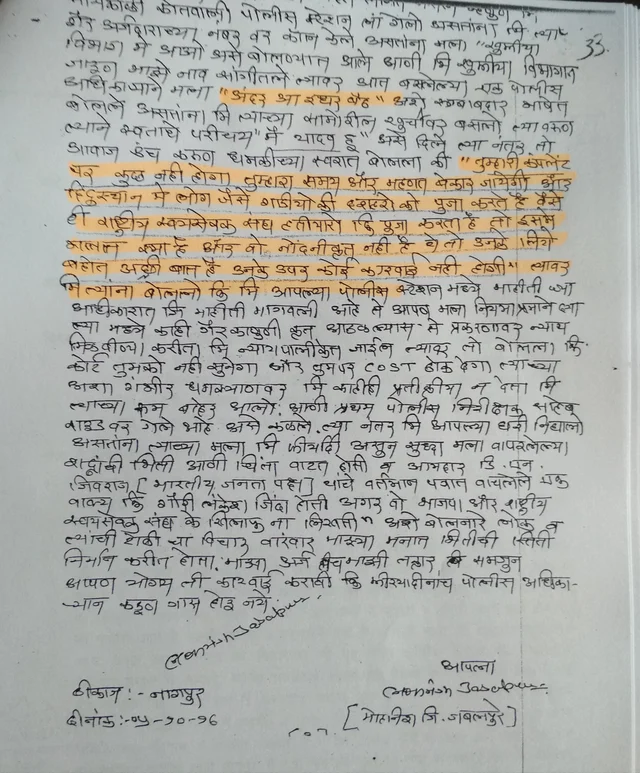 कोतवाली पोलीस स्टेशन ला गेलो असतांना मि त्या
गैर अर्जदाराच्या नंबर वर कॉल केले असतांना मला "खुफीया 33
विभाग मे आओ असे बोलण्यात आले आणी मि खुफीया विभागात
जाऊन माझे नाव सांगीतले त्यावर आत बसलेल्या एक पोलीस
अधिकाऱ्याने मला "अंदर आ इधर बैठ" असे भाषेत
बोलले असतांना मि त्याच्या सामोरील खुर्चीवर बसलो त्या वरुन
त्याने स्वताचे परीचय "मै यादव हू" असे दिले त्या नंतर तो
आवाज उंच करुन धमकीच्या स्वरात बोलला की "तुम्हारी कंप्लेंट
पर कुछ नही होगा तुम्हारा समय और महेनत बेकार जायेगी और
हिंदुस्थान मे लोग जैसे गाडीयो की दशहरे को पुजा करते है वैसे
ही राष्ट्रीय स्वयंसेवक संघ हतीयारो कि पुजा करता है तो इसमे
गलत क्या है और वो नोंदनीकृत नही है ये तो उनके लिये
बहोत अच्छी बात है उनके उपर कोई कारवाई नही होगी" त्यावर
मि त्यांना बोललो कि मि आपल्या पोलीस स्टेशन मध्ये माहीती च्या
अधीकारात कि माहीती मागवली आहे ते आपण मला नियमाप्रमाने द्या
त्या मध्ये काही गैरकानुनी कृत आढळल्यास ते प्रकरणावर न्याय
मिळवीण्या करीता मि न्यायपालीकेत जाईल त्यावर तो बोलला कि
कोर्ट तुमको नही सुनेगा और तुमपर COST ठोक देगा त्याच्या
अशा गंभीर धमक्यानावर मि काहीही प्रतीक्रीया न देता मि
त्याच्या रूम बाहेर आलो. आणी प्रथम पोलीस निरीक्षक साहेब
राउंड वर गेले आहे असे कळले. त्या नंतर मि आपल्या घरी निघालो
असतांना त्याच्या मला मि फीर्यादी असुन सुध्दा मला वापरलेल्या
शब्दांची भिती आणी चिंता वाटत होती व आमदार डि. एन.
जिवराज [भारतीय जनता पक्ष] यांचे वर्तमान पत्रात वाचलेले एक
वाक्य कि गौरी लंकेश जिंदा होती अगर वो भाजपा और राष्ट्रीय
स्वयंसेवक संघ के खिलाफ ना लिखती" असे बोलनारे लोक व
त्यांची चा विचार वारंवार माझ्या मनात भितीची स्तिती
निर्मान करीत होता. माझा अर्ज हिच माझी तक्रार समजुन
आपण योग्य ती कारवाई करावी कि फीरयादीनांच पोलीस अधिका-
-यान कडून त्रास होइ नये.
ठीकान :- नागपुर
आपला
दीनांक :-
[मोहनिश जि. जबलपुरे]